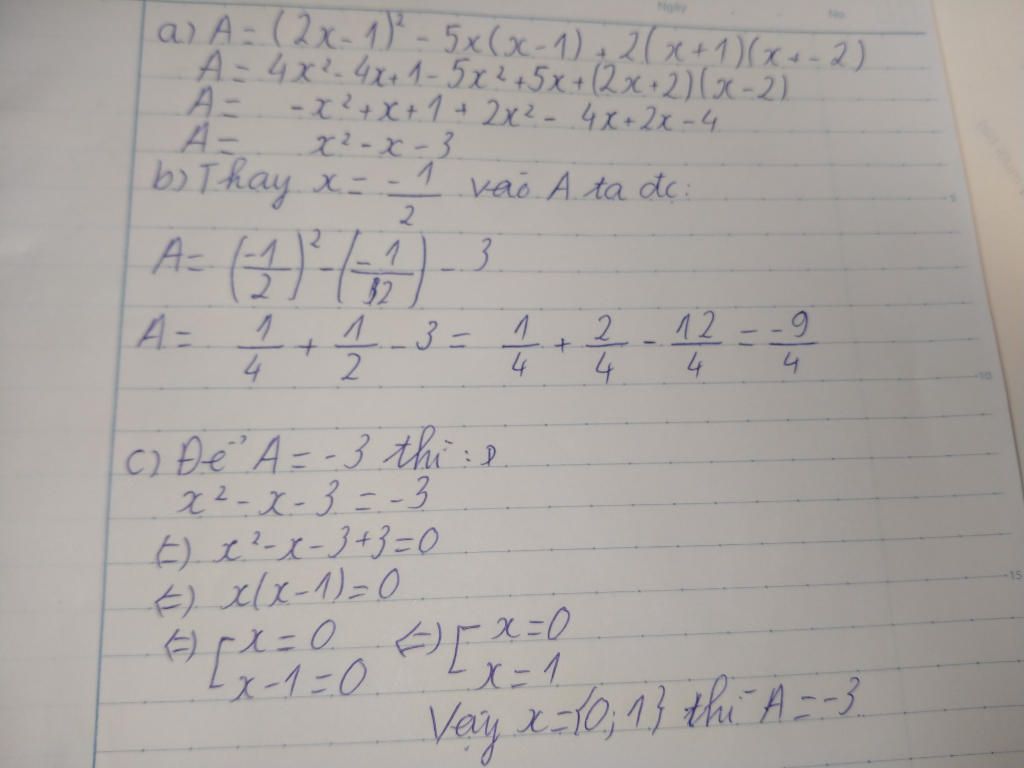 Ngày No.
a) A = (2x - 1)² - 5x(x - 1) + 2(x + 1)(x + - 2)
A = 4x² - 4x + 1 - 5x² + 5x + (2x + 2)(x - 2)
A = -x² + x + 1 + 2x² - 4x + 2x - 4
A = x² - x - 3
b) Thay x = -1/2 vào A ta đc:
A = (-1/2)² - (-1/2) - 3
A = 1/4 + 1/2 - 3 = 1/4 + 2/4 - 12/4 = -9/4
c) Để A = -3 thì:
x² - x - 3 = -3
(=) x² - x - 3 + 3 = 0
(=) x(x - 1) = 0
(=) [ x = 0 (=) [ x = 0
x - 1 = 0 x = 1
Vậy x = {0; 1} thì A = -3
5
10
15